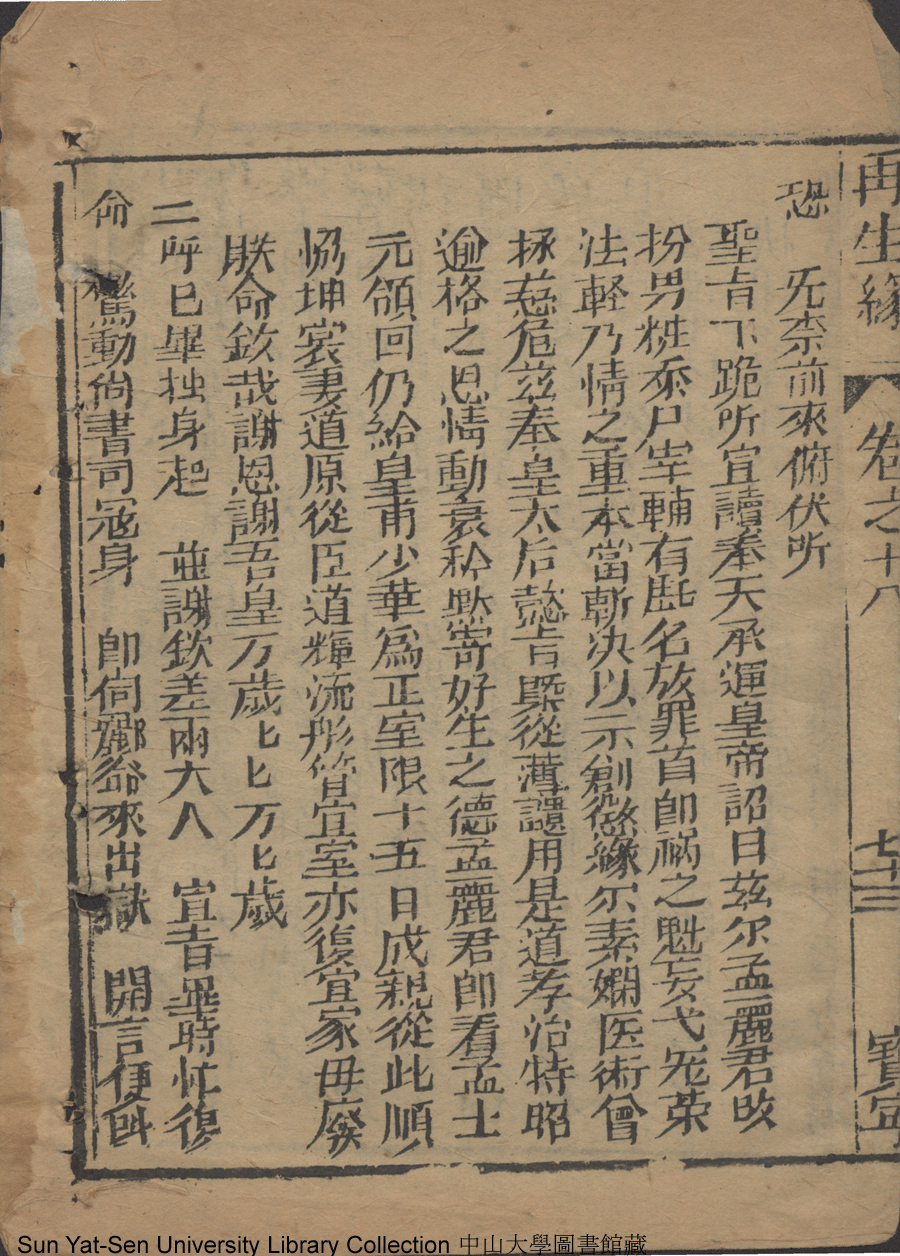 再生緣 卷之十八 七十三 寶寧
恐 旡柰前來俯伏所
聖旨下跪所宣讀奉天承運皇帝詔曰茲尔孟麗君改
扮男粧忝尸宰輔有厐名故罪首卽禍之魁妄弋冠荣
法輕乃情之重本當斬决以示創懲緣尔素嫻医術曾
拯慈危茲奉皇太后懿旨曁從薄譴用是道孝治特昭
逾格之恩情動哀矜默寄好生之德孟麗君卽着孟士
元領回仍給皇甫少華爲正室限十五日成親從此順
恊坤裳妻道原從臣道輝流彤管宜室亦復宜家毋廢
朕命欽哉謝恩謝吾皇万歲匕匕万匕歲
二呼已畢抽身起 並謝欽差兩大人 宣旨畢時忙復
命 驚動尙書司冦身 卽伺酈爺來出獄 開言便呌